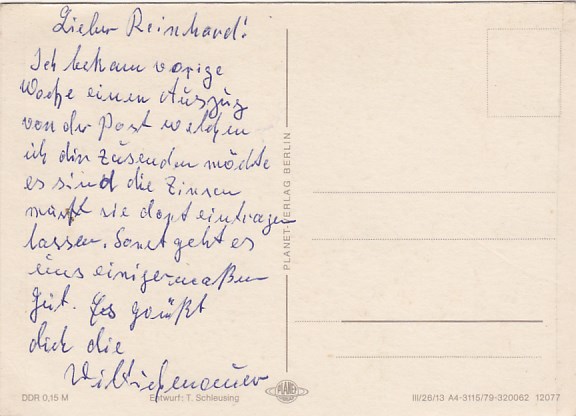 Lieber Reinhard!
Ich bekam vorige
Woche einen Auszug
von der Post welchen
ich dir zusenden möchte
es sind die Zinsen
mußt sie dort eintragen
lassen. Sonst geht es
uns einigermaßen
gut. Es grüßt
dich die
PLANET-VERLAG BERLIN
DDR 0,15 M
Entwurf: T. Schleusing
PLANET
III/26/13 A4-3115/79-320062 12077